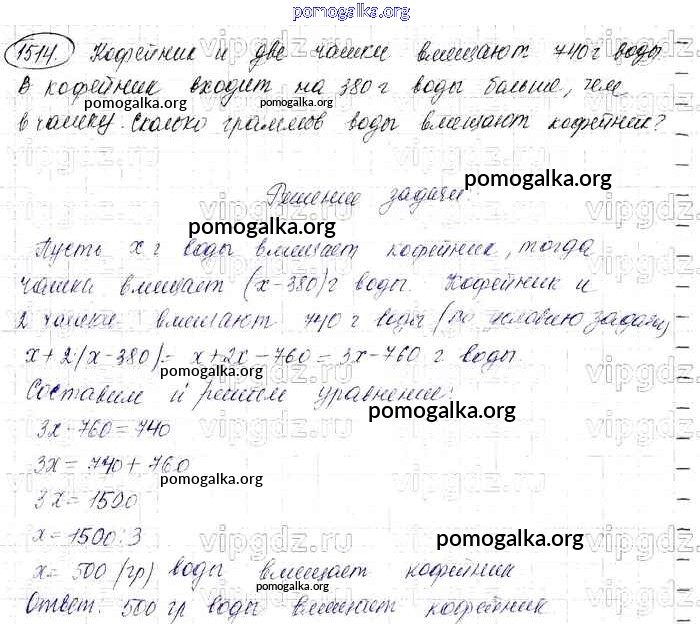 pomogalka.org
1514. Кофейник и две чашки вмещают 740 г воды.
В кофейник входит на 380 г воды больше, чем
в чашку. Сколько граммов воды вмещают кофейник?
Решение задачи.
Пусть x г воды вмещает кофейник, тогда
чашка вмещает (x-380) г воды. Кофейник и
2 чашки вмещают 740 г воды (по условию задачи)
x+2(x-380)= x+2x-760=3x-760 г воды.
Составим и решим уравнение:
3x-760=740
3x=740+760
3x=1500
x=1500:3
x=500 (гр) воды вмещает кофейник
Ответ: 500 гр воды вмещает кофейник
pomogalka.org
pomogalka.org
pomogalka.org
pomogalka.org
pomogalka.org
pomogalka.org
pomogalka.org
pomogalka.org
pomogalka.org
vipgdz.ru